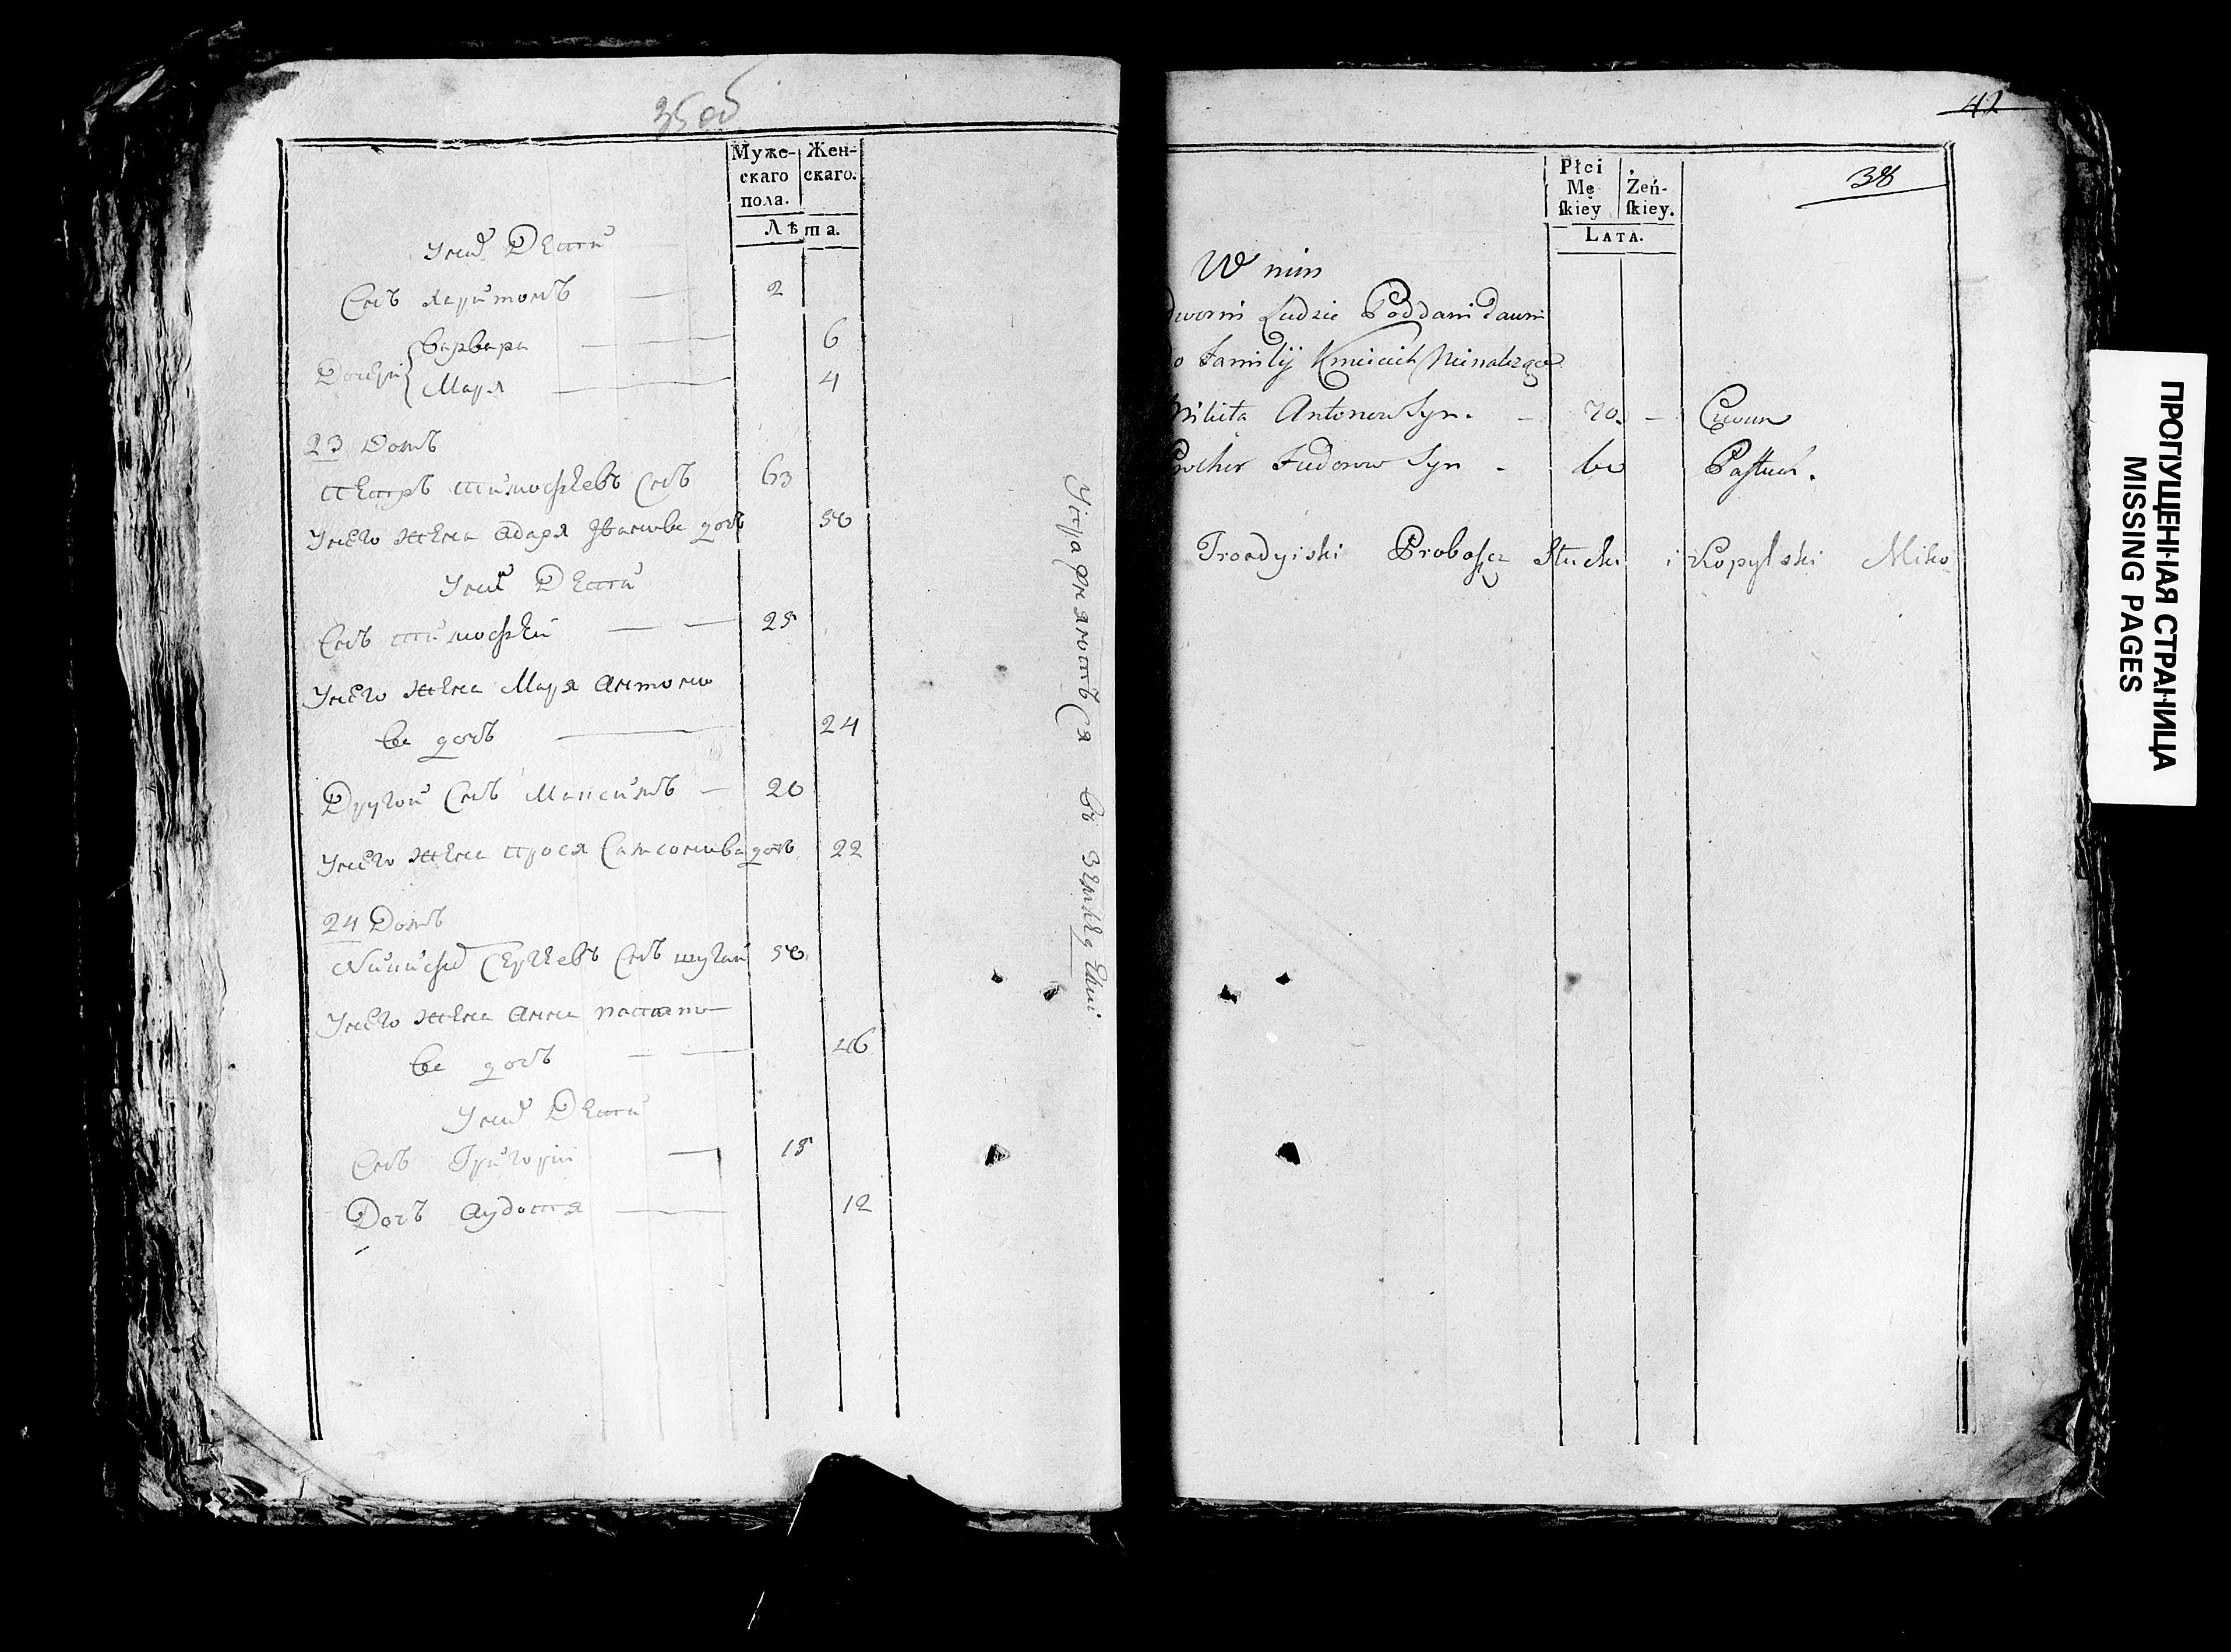 35 об
Муже-
скаго
пола.
Жен-
скаго.
Лѣта.
У нихъ Дети
Снъ Харитонъ 2
Дочери Варвара 6
Маря 4
23 Домъ
Петръ Тимофѣевъ Снъ 63
У него жена Адаря Иванова дочь 50
У нихъ Дети
Снъ Тимофѣй 25
У него жена Маря Антоно
ва дочь 24
Другой Снъ Максимъ 20
У него жена Прося Самсонова дочь 22
24 Домъ
Сергѣевъ Снъ 50
У него жена Анна
ва дочь 46
У нихъ Дети
Снъ Григорій 18
Дочь Аудотя 12
въ
42
38
Płci
Mę
skiey
Żeń-
skiey.
LATA.
W nim
dworni Ludzie Poddani dawni
o Familij Kmieciich Nienalezące
Mikita Antonow Syn. - 70. - Ciwun
Prochor Fiedorow Syn - 60 Pastuch.
Proboszcz Słucki i Kopylski Miko
ПРОПУЩЕННАЯ СТРАНИЦА
MISSING PAGES